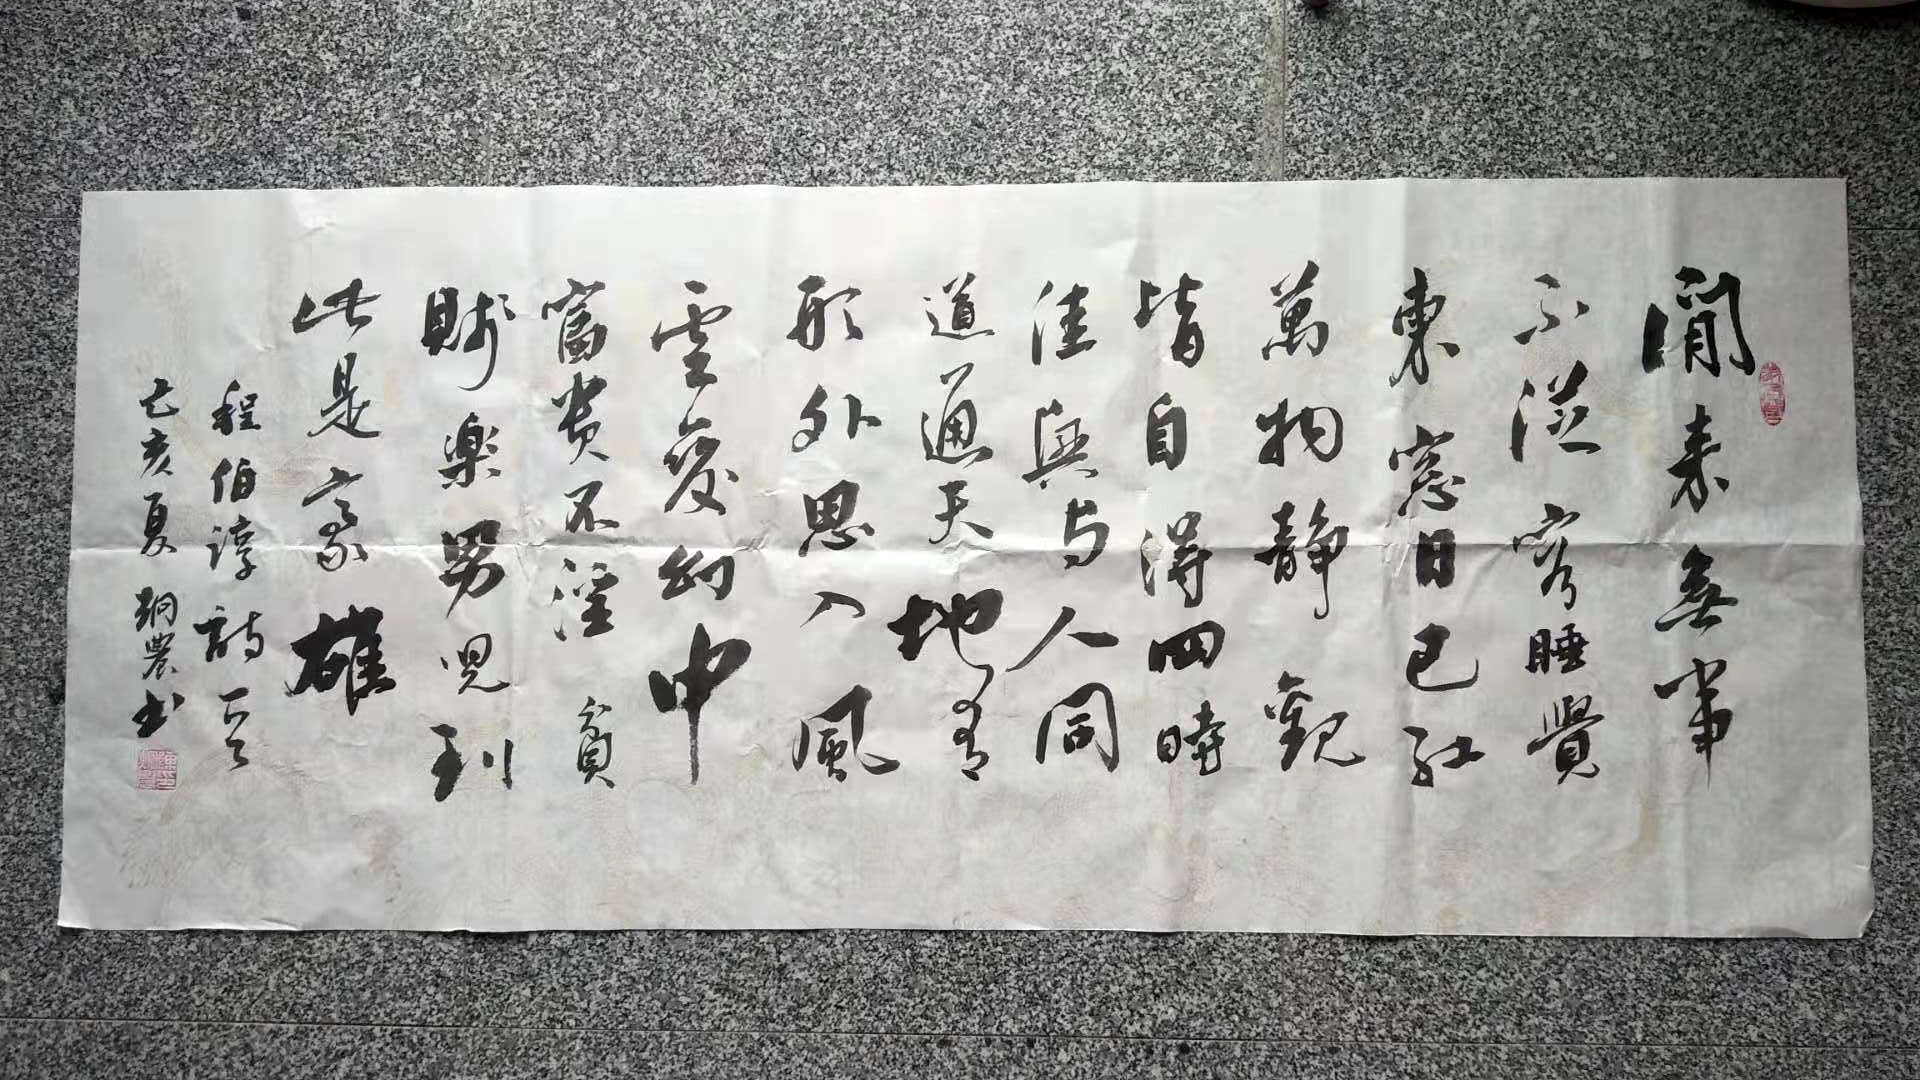 閒来無事
不從容睡覺
東窓日已紅
萬物静觀
皆自得四時
佳興与人同
道通天地有
形外思入風
雲變幻中
富貴不淫貧
賤楽男児到
此是豪雄
程伯淳詩一首
己亥夏 農书